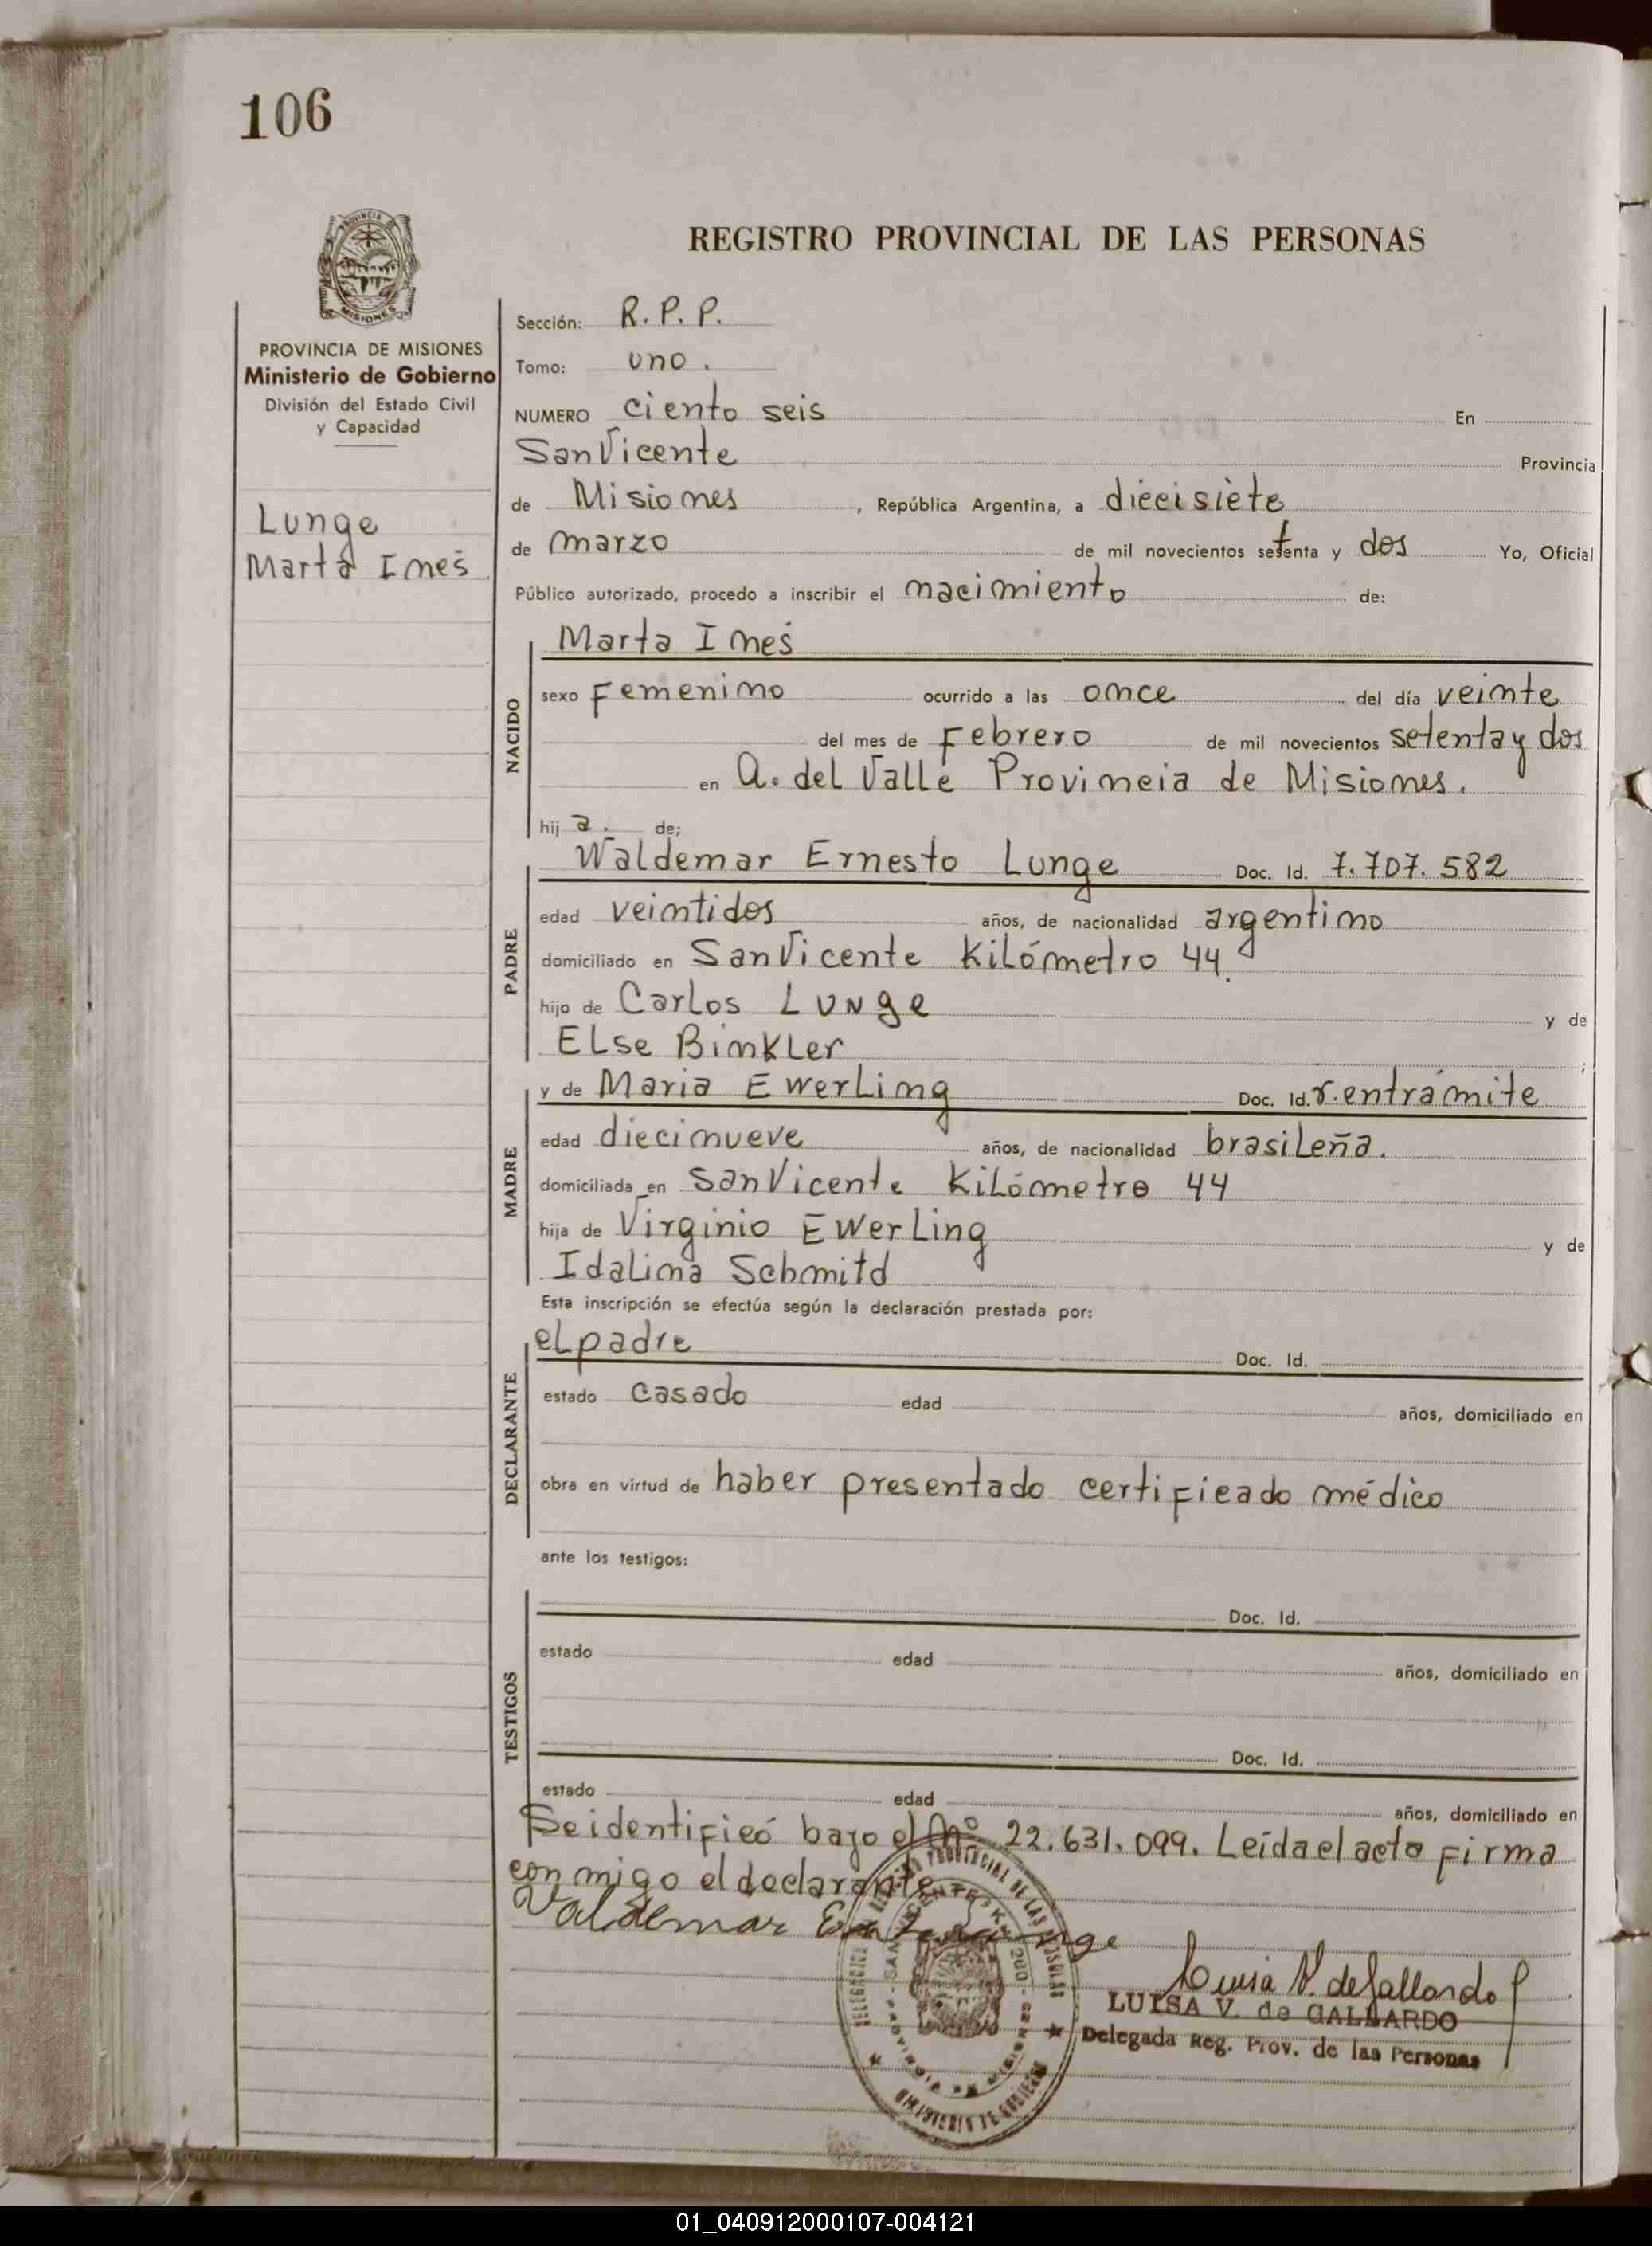 106
PROVINCIA DE MISIONES
Ministerio de Gobierno
División del Estado Civil
y Capacidad
Lunge
Marta Inés
REGISTRO PROVINCIAL DE LAS PERSONAS
Sección: R.P.P.
Tomo: uno.
NUMERO ciento seis En
San Vicente Provincia
de Misiones, República Argentina, a diecisiete
de marzo de mil novecientos setenta y dos Yo, Oficial
Público autorizado, procedo a inscribir el nacimiento de:
Marta Inés
NACIDO
sexo Femenino ocurrido a las once del día veinte
del mes de Febrero de mil novecientos setenta y dos
en A. del Valle Provincia de Misiones.
hij a. de;
PADRE
Waldemar Ernesto Lunge Doc. Id. 7.707.582
edad veintidos años, de nacionalidad argentino
domiciliado en San Vicente Kilómetro 44.
hijo de Carlos Lunge y de
Else Binkler ;
MADRE
y de Maria Ewerling Doc. Id. r. en trámite
edad diecinueve años, de nacionalidad brasileña.
domiciliada en San Vicente Kilómetro 44
hija de Virginio Ewerling y de
Idalina Schmitd
Esta inscripción se efectúa según la declaración prestada por:
DECLARANTE
el padre Doc. Id.
estado casado edad años, domiciliado en
obra en virtud de haber presentado certificado médico
ante los testigos:
TESTIGOS
Doc. Id.
estado edad años, domiciliado en
Doc. Id.
estado edad años, domiciliado en
Se identificó bajo el Nº 22.631.099. Leída el acta firma
conmigo el declarante
Valdemar Lunge
Luisa V. de Gallardo
LUISA V. de GALLARDO
Delegada Reg. Prov. de las Personas
MINISTERIO DE GOBIERNO
01_040912000107-004121